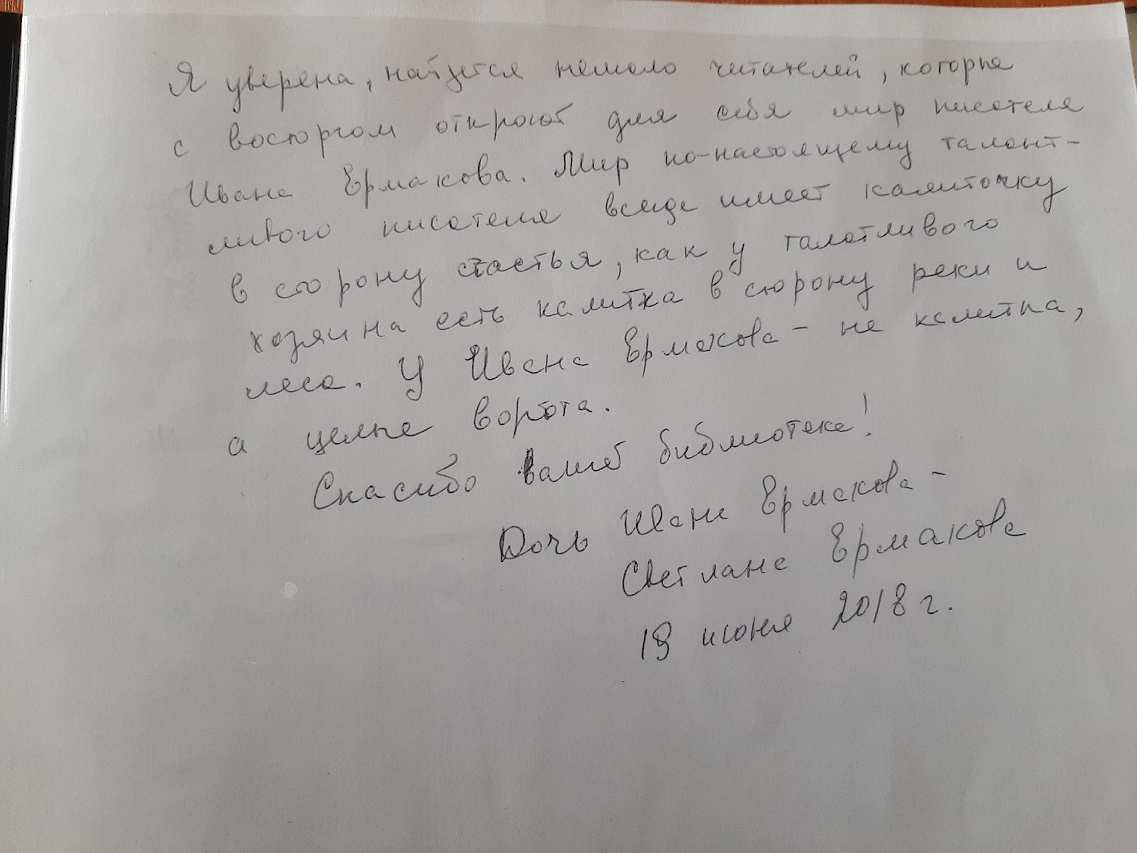 Я уверена, найдется немало читателей, которые
с восторгом откроют для себя мир писателя
Ивана Ермакова. Мир по-настоящему талант-
ливого писателя всегда имеет калиточку
в сторону счастья, как у талатливого
хозяина есть калитка в сторону реки и
леса. У Ивана Ермакова - не калитка,
а целые ворота.
Спасибо вашей библиотеке!
Дочь Ивана Ермакова -
Светлана Ермакова
18 июня 2018 г.